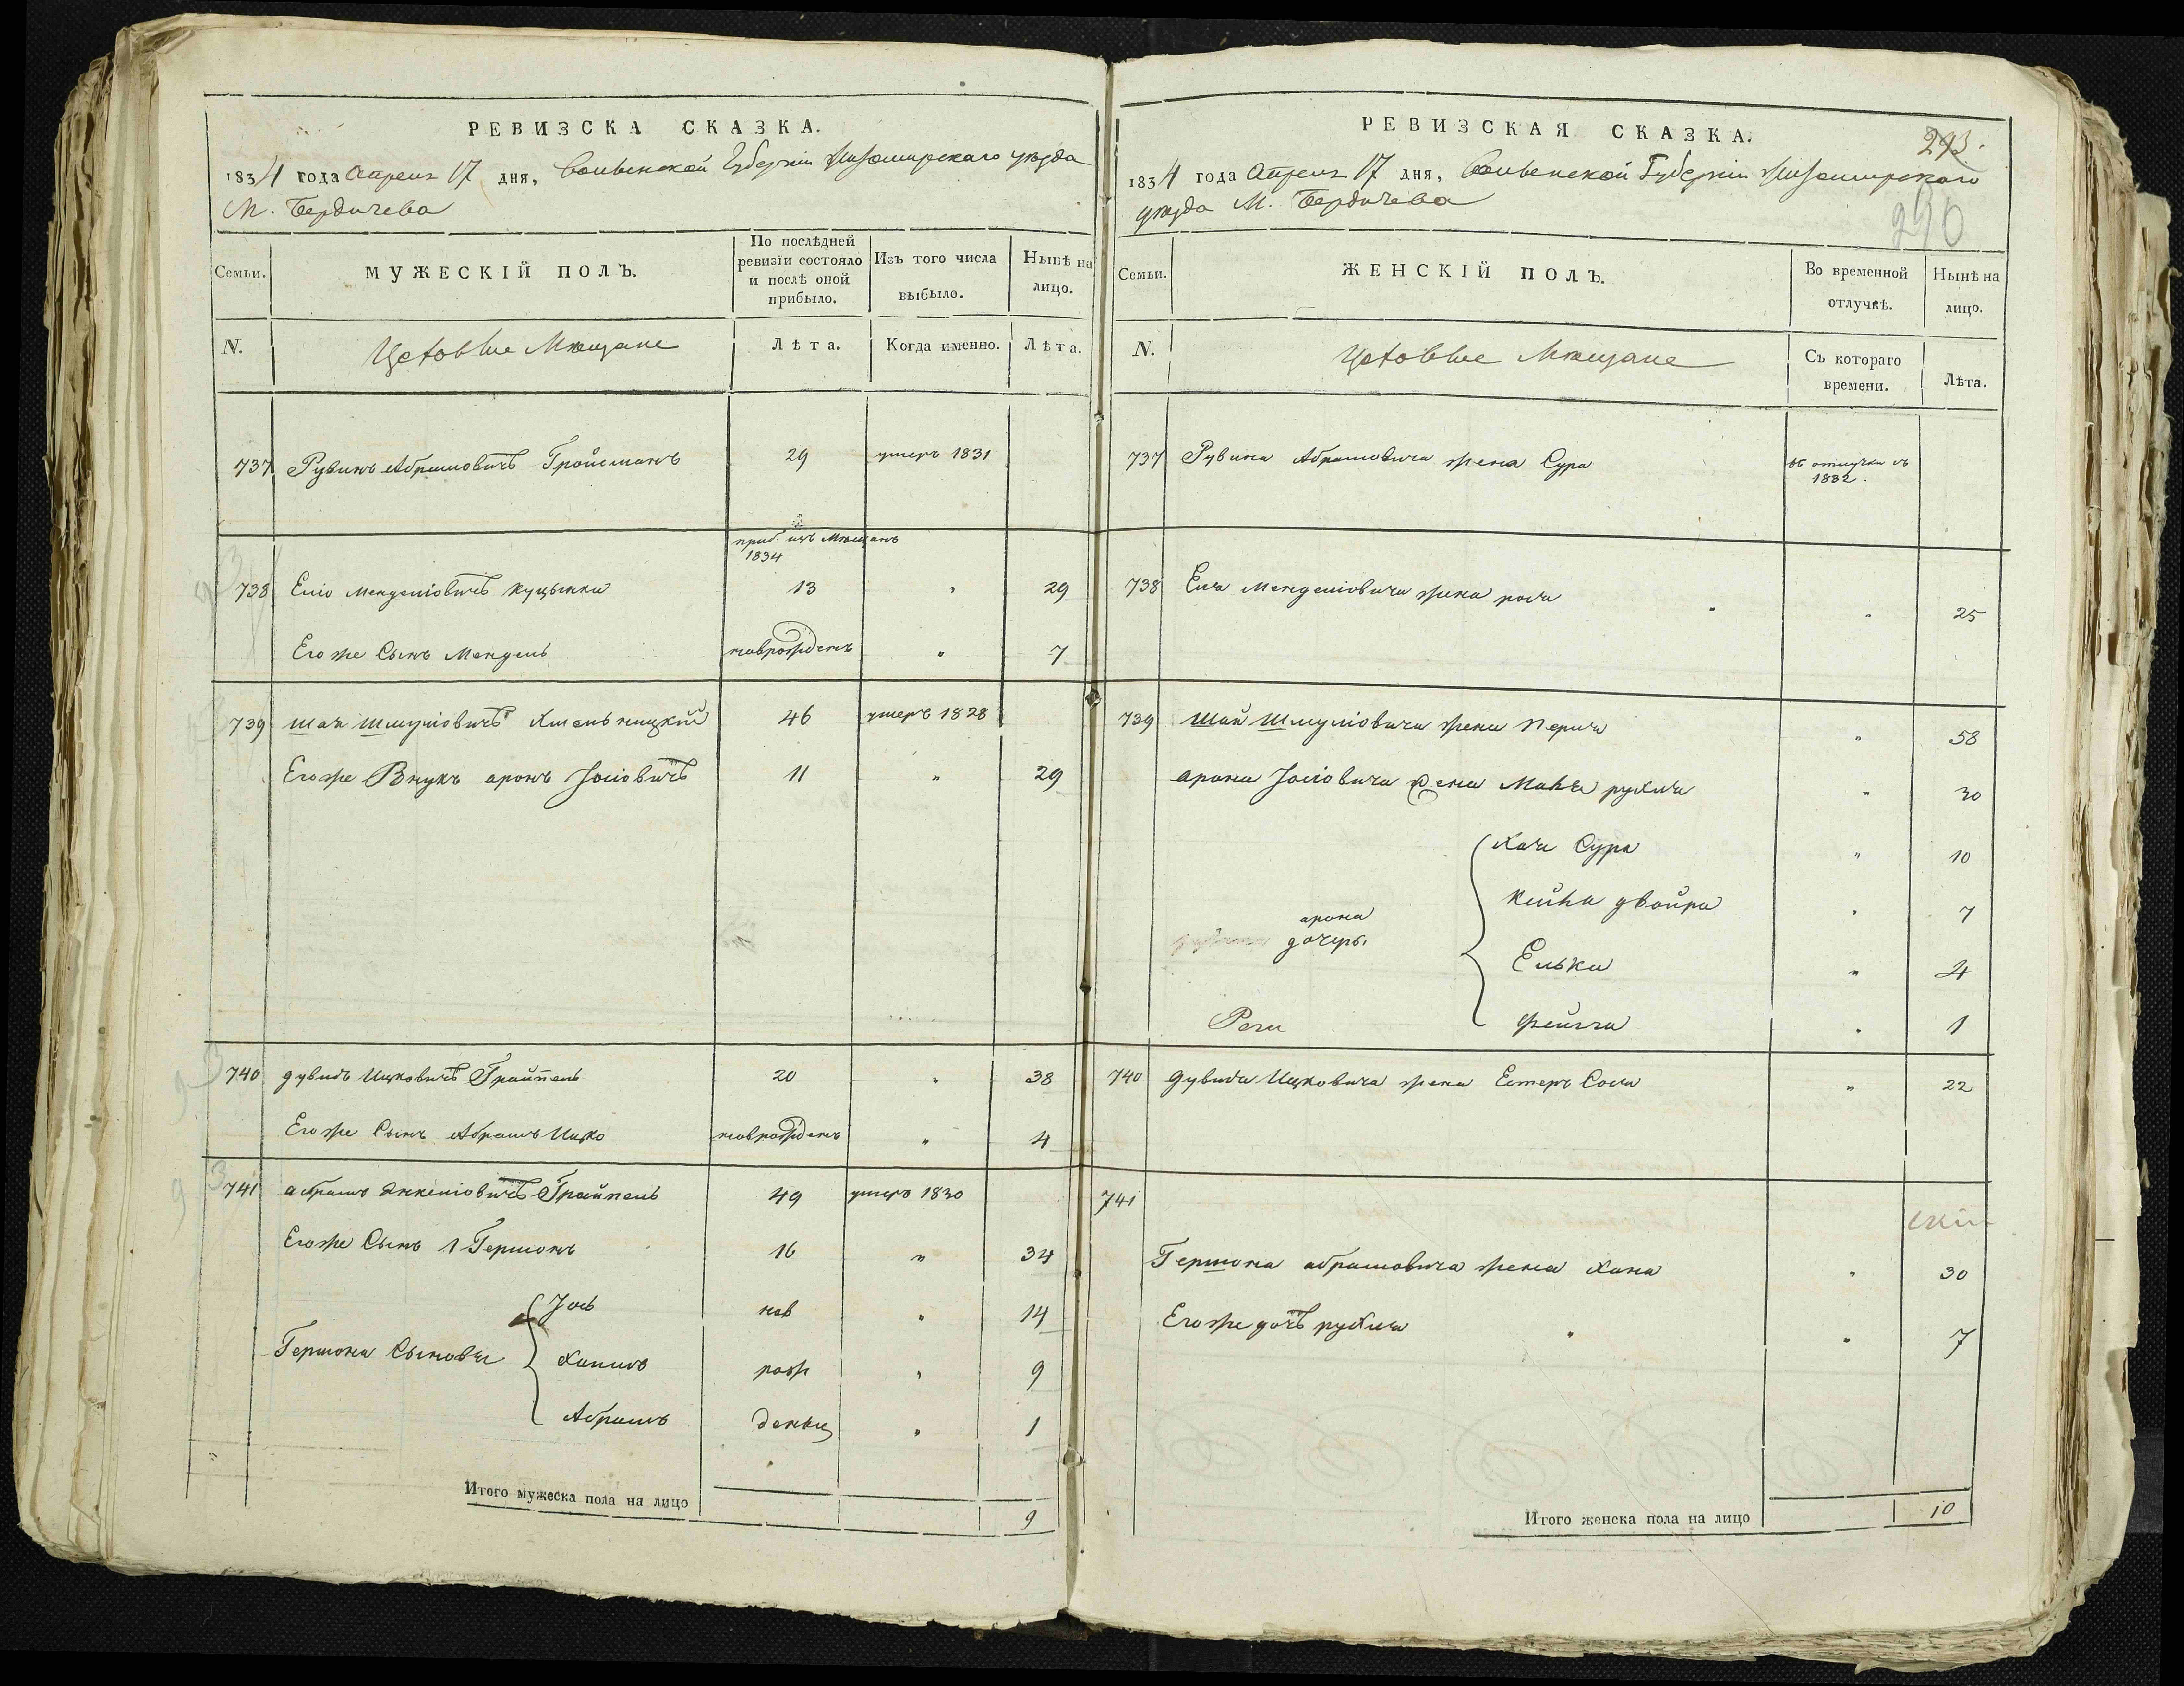 РЕВИЗСКА СКАЗКА.
1834 года Апреля 17 дня, Волынской Губерніи Житомирского уезда
М. Бердичева
Семьи. МУЖЕСКІЙ ПОЛЪ. По послѣдней ревизіи состояло и послѣ оной прибыло. Изъ того числа выбыло. Нынѣ на лицо.
N. Цеховые Мещане Лѣта. Когда именно. Лѣта.
737 Рувинъ Абрамовичъ Гройсманъ 29 умеръ 1831
приб. изъ Мещанъ
1834
738 Еліо Менделіовичъ 13 " 29
Его же Сынъ Мендель новрожденъ " 7
739 Шая Шмуліовичъ Хмельницкій 46 умеръ 1828
Его же Внукъ Аронъ Іосіовичъ 11 " 29
740 Дувидъ Ицковичъ 20 " 38
Его же Сынъ Абрамъ Ицко новрожденъ " 4
741 Абрамъ Янкеліовичъ 49 умеръ 1830
Его же Сынъ 1 Гершонъ 16 " 34
Іось нов " 14
Гершона Сыновья Хаимъ рож " 9
Абрамъ денны " 1
Итого мужеска пола на лицо 9
РЕВИЗСКАЯ СКАЗКА.
293.
1834 года Апреля 17 дня, Волынской Губерніи Житомирского
уезда М. Бердичева
290
Семьи. ЖЕНСКІЙ ПОЛЪ. Во временной отлучкѣ. Нынѣ на лицо.
N. Цеховые Мещане Съ котораго времени. Лѣта.
737 Рувина Абрамовича жена Сура въ отлучки съ
1832.
738 Еля Менделіовича жена " 25
739 Шаи Шмуліовича жена Перля " 58
Арона Іосіовича жена Рухля " 30
Хая Сура " 10
Двойра " 7
арона
дочеры
Елька " 4
Фейга " 1
740 Дувида Ицковича жена Естеръ Сося " 22
741
Гершона Абрамовича жена Хана " 30
Его же дочъ Рухля " 7
Итого женска пола на лицо 10